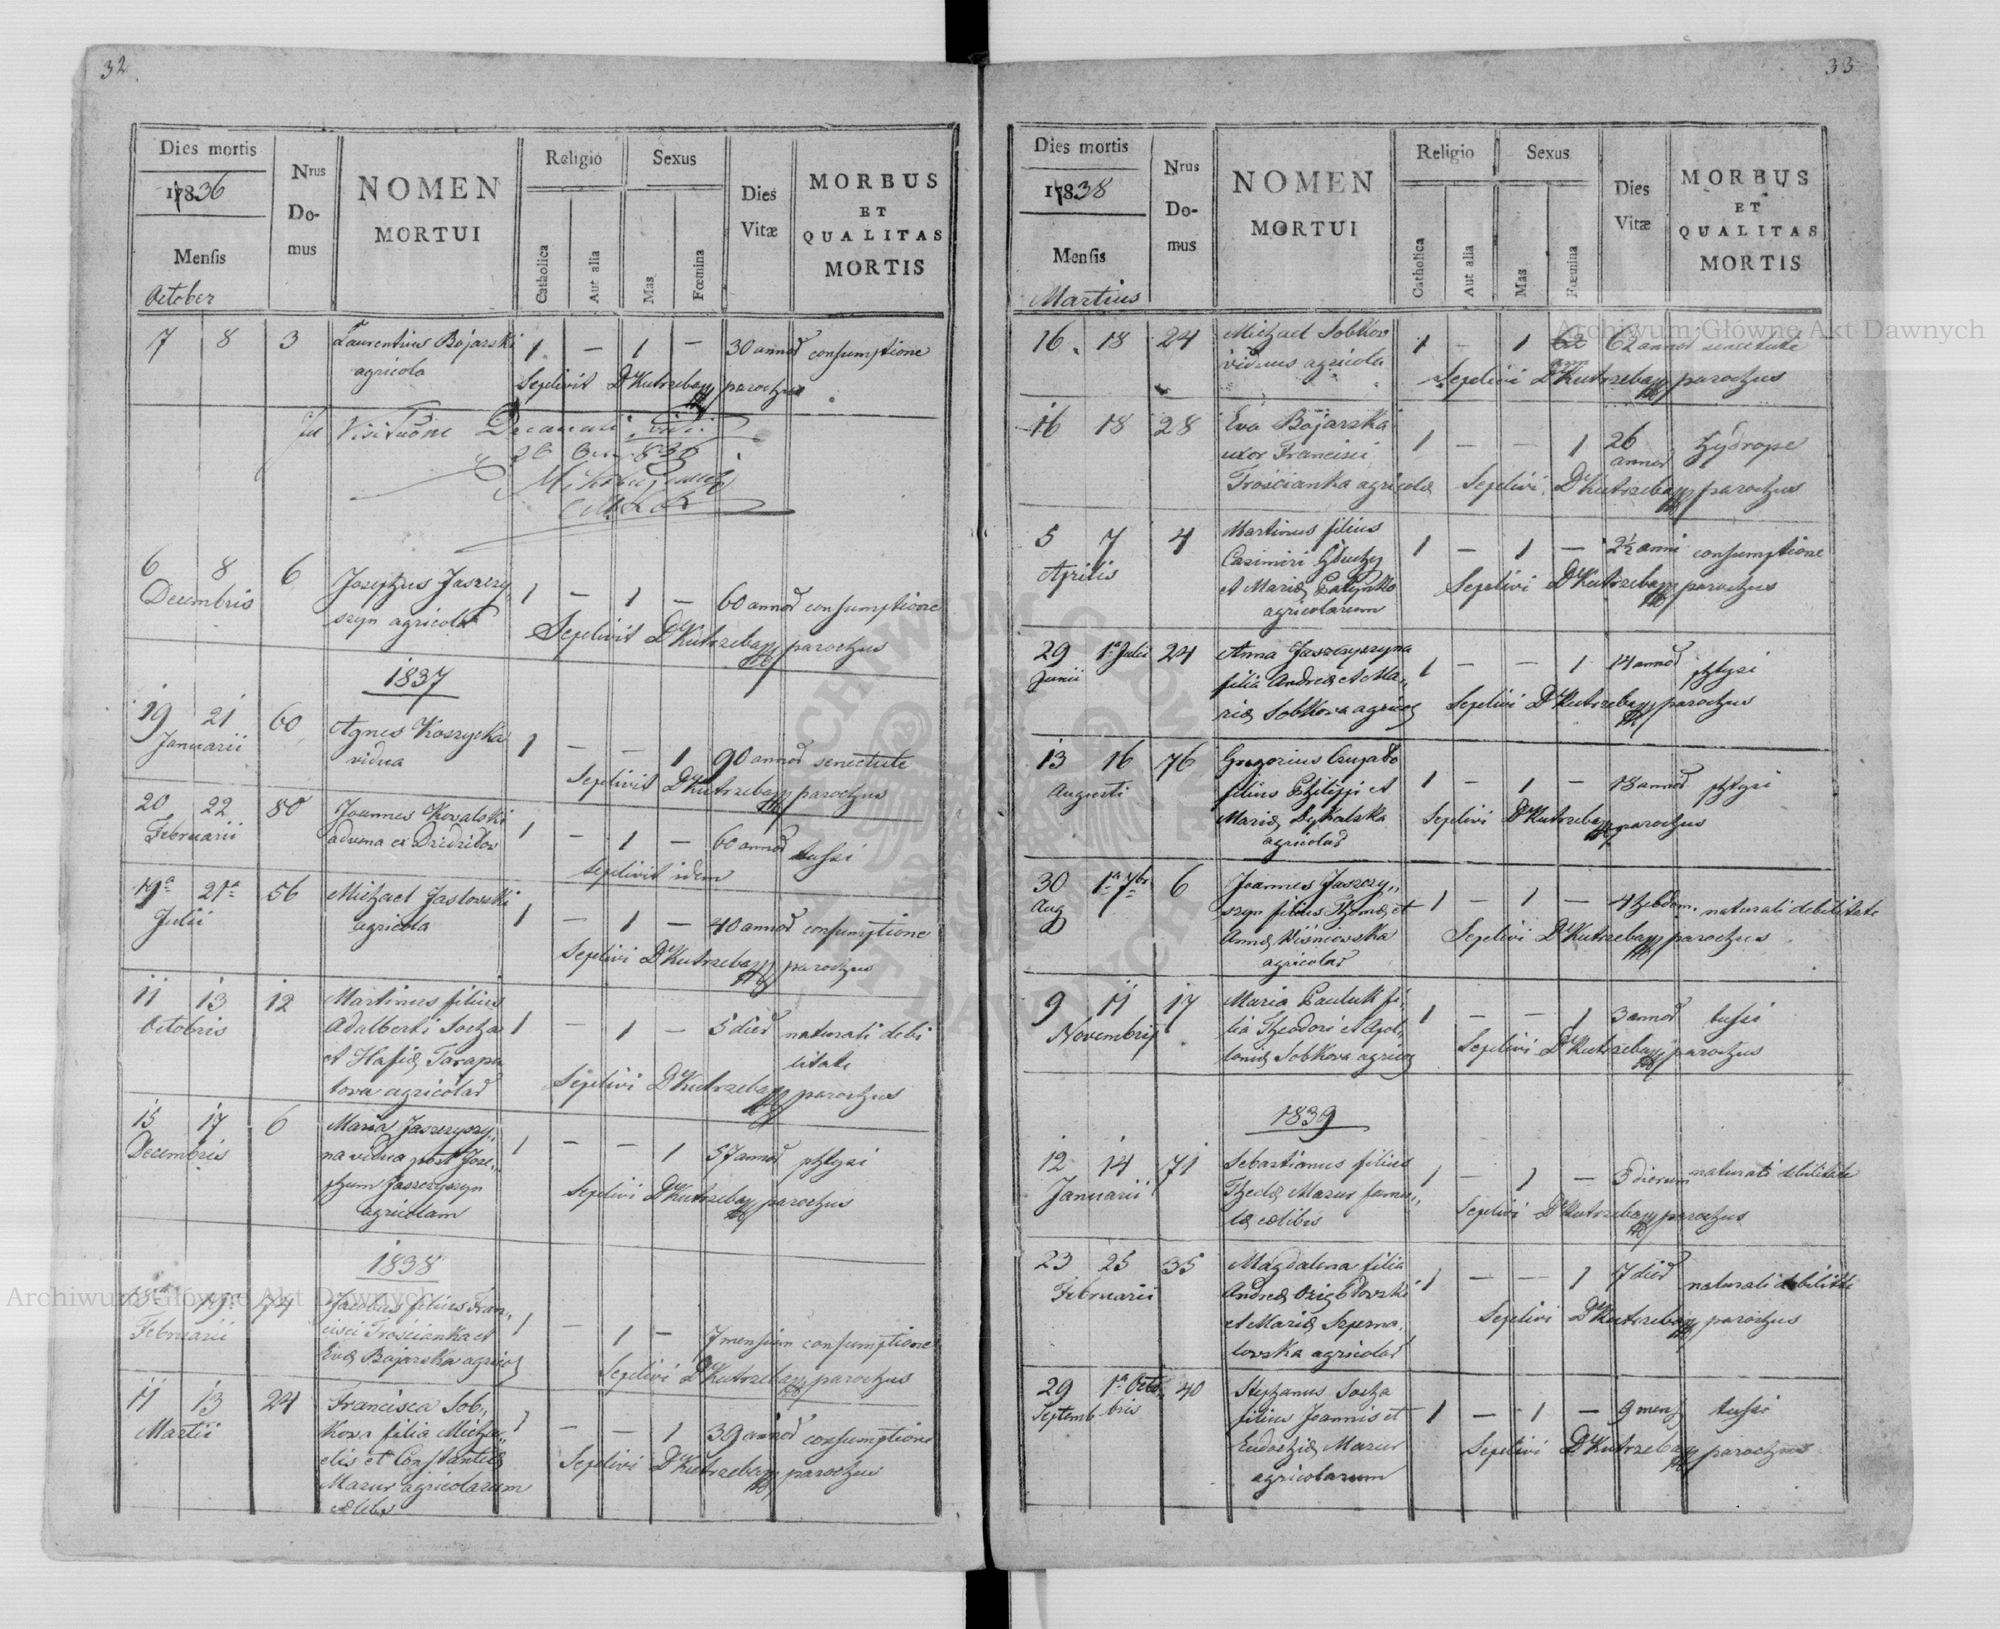 32
Dies mortis
Nrus
Do-
mus
NOMEN
MORTUI
Religio
Sexus
Dies
Vitæ
MORBUS
ET
QUALITAS
MORTIS
1836
Mensis
Catholica
Aut alia
Mas
Fœmina
October
7 8 3 Laurentius Bojarski 1 — 1 — 30 annor consumptione
agricola
Sepelivit Dr Kutrzeba parochus
Visitatione Decanali
6 8 6 Josephus Jaszczy„ 1 — 1 — 60 annor consumptione
Decembris
szyn agricola
Sepelivit Dr Kutrzeba parochus
1837
19 21 60 Agnes Koszycka 1 — — 1 90 annor senectute
Januarii
vidua
Sepelivit Dr Kutrzeba parochus
20 22 80 Joannes Kowalski 1 — 1 — 60 annor tussi
Februarii
advena ex Dzidzilow
Sepelivit idem
19a 21a 56 Michael Jaslovski 1 — 1 — 40 annor consumptione
Julii
agricola
Sepelivi Dr Kutrzeba parochus
11 13 12 Martinus filius
Octobris
Adalberti Socha 1 — 1 — 5 dier naturali debi
et Hafiæ Tarapa
litate
tova agricolar
Sepelivi Dr Kutrzeba parochus
15 17 6 Maria Jaszczyszy„ 1 — — 1 57 annor phtysi
Decembris
na vidua post Jose„
phum Jaszczyszyn
agricolam
Sepelivi Dr Kutrzeba parochus
1838
19 74 Jacobus filius Fran„
Februarii
cisci Trościanka et 1 — 1 — 7 mensium consumptione
Evæ Bojarska agricol
Sepelivi Dr Kutrzeba parochus
11 13 24 Francisca Sob„ 1 — — 1 39 annor consumptione
Martii
kova filia Micha„
elis et Constantiæ
Mazur agricolarum
cælebs
Sepelivi Dr Kutrzeba parochus
33
Dies mortis
Nrus
Do-
mus
NOMEN
MORTUI
Religio
Sexus
Dies
Vitæ
MORBUS
ET
QUALITAS
MORTIS
1838
Mensis
Catholica
Aut alia
Mas
Fœmina
Martius
16 18 24 Michael Sobkow 1 — 1 62 annor senectute
viduus agricola
Sepelivi Dr Kutrzeba parochus
16 18 28 Eva Bojarska 1 — — 1 26 annor hydrope
uxor Francisci
Trościanka agricolæ
Sepelivi Dr Kutrzeba parochus
5 7 4 Martinus filius 1 — 1 — 2½ anni consumptione
Aprilis
Casimiri Głuchy
et Mariæ
agricolarum
Sepelivi Dr Kutrzeba parochus
29 1a Julii 24 Anna Jaszczyszyna 1 — — 1 14 annor phtysi
Junii
filia Andreæ et Ma„
riæ Sobkova agricol
Sepelivi Dr Kutrzeba parochus
13 16 76 Gregorius 1 — 1 — 18 annor phtysi
Augusti
filius Philippi et
Mariæ Dykalska
agricolar
Sepelivi Dr Kutrzeba parochus
30 1a 7br 6 Joannes Jaszczy„ 1 — 1 — 4 hebdom. naturali debilitate
Aug
szyn filius Thomæ et
Annæ Wiśniowska
agricolar
Sepelivi Dr Kutrzeba parochus
9 11 17 Maria Pauluk fi„ 1 — — 1 3 annor tussi
Novembris
lia Theodori et Apol„
loniæ Sobkova agricol
Sepelivi Dr Kutrzeba parochus
1839
12 14 71 Sebastianus filius 1 — 1 — 5 dierum naturali debilitate
Januarii
Theclæ Mazur famu„
læ cælibis
Sepelivi Dr Kutrzeba parochus
23 25 35 Magdalena filia 1 — — 1 7 dier naturali debilitate
Februarii
Andreæ Dzięblowski
et Mariæ Szperna„
lovska agricolar
Sepelivi Dr Kutrzeba parochus
29 1a Octo„ 40 Stephanus Socha 1 — 1 — 9 mens tussi
Septemb bris
filius Joannis et
Eudochiæ Mazur
agricolarum
Sepelivi Dr Kutrzeba parochus
Archiwum Główne Akt Dawnych
Archiwum Główne Akt Dawnych
ARCHIWUM GŁÓWNE AKT DAWNYCH